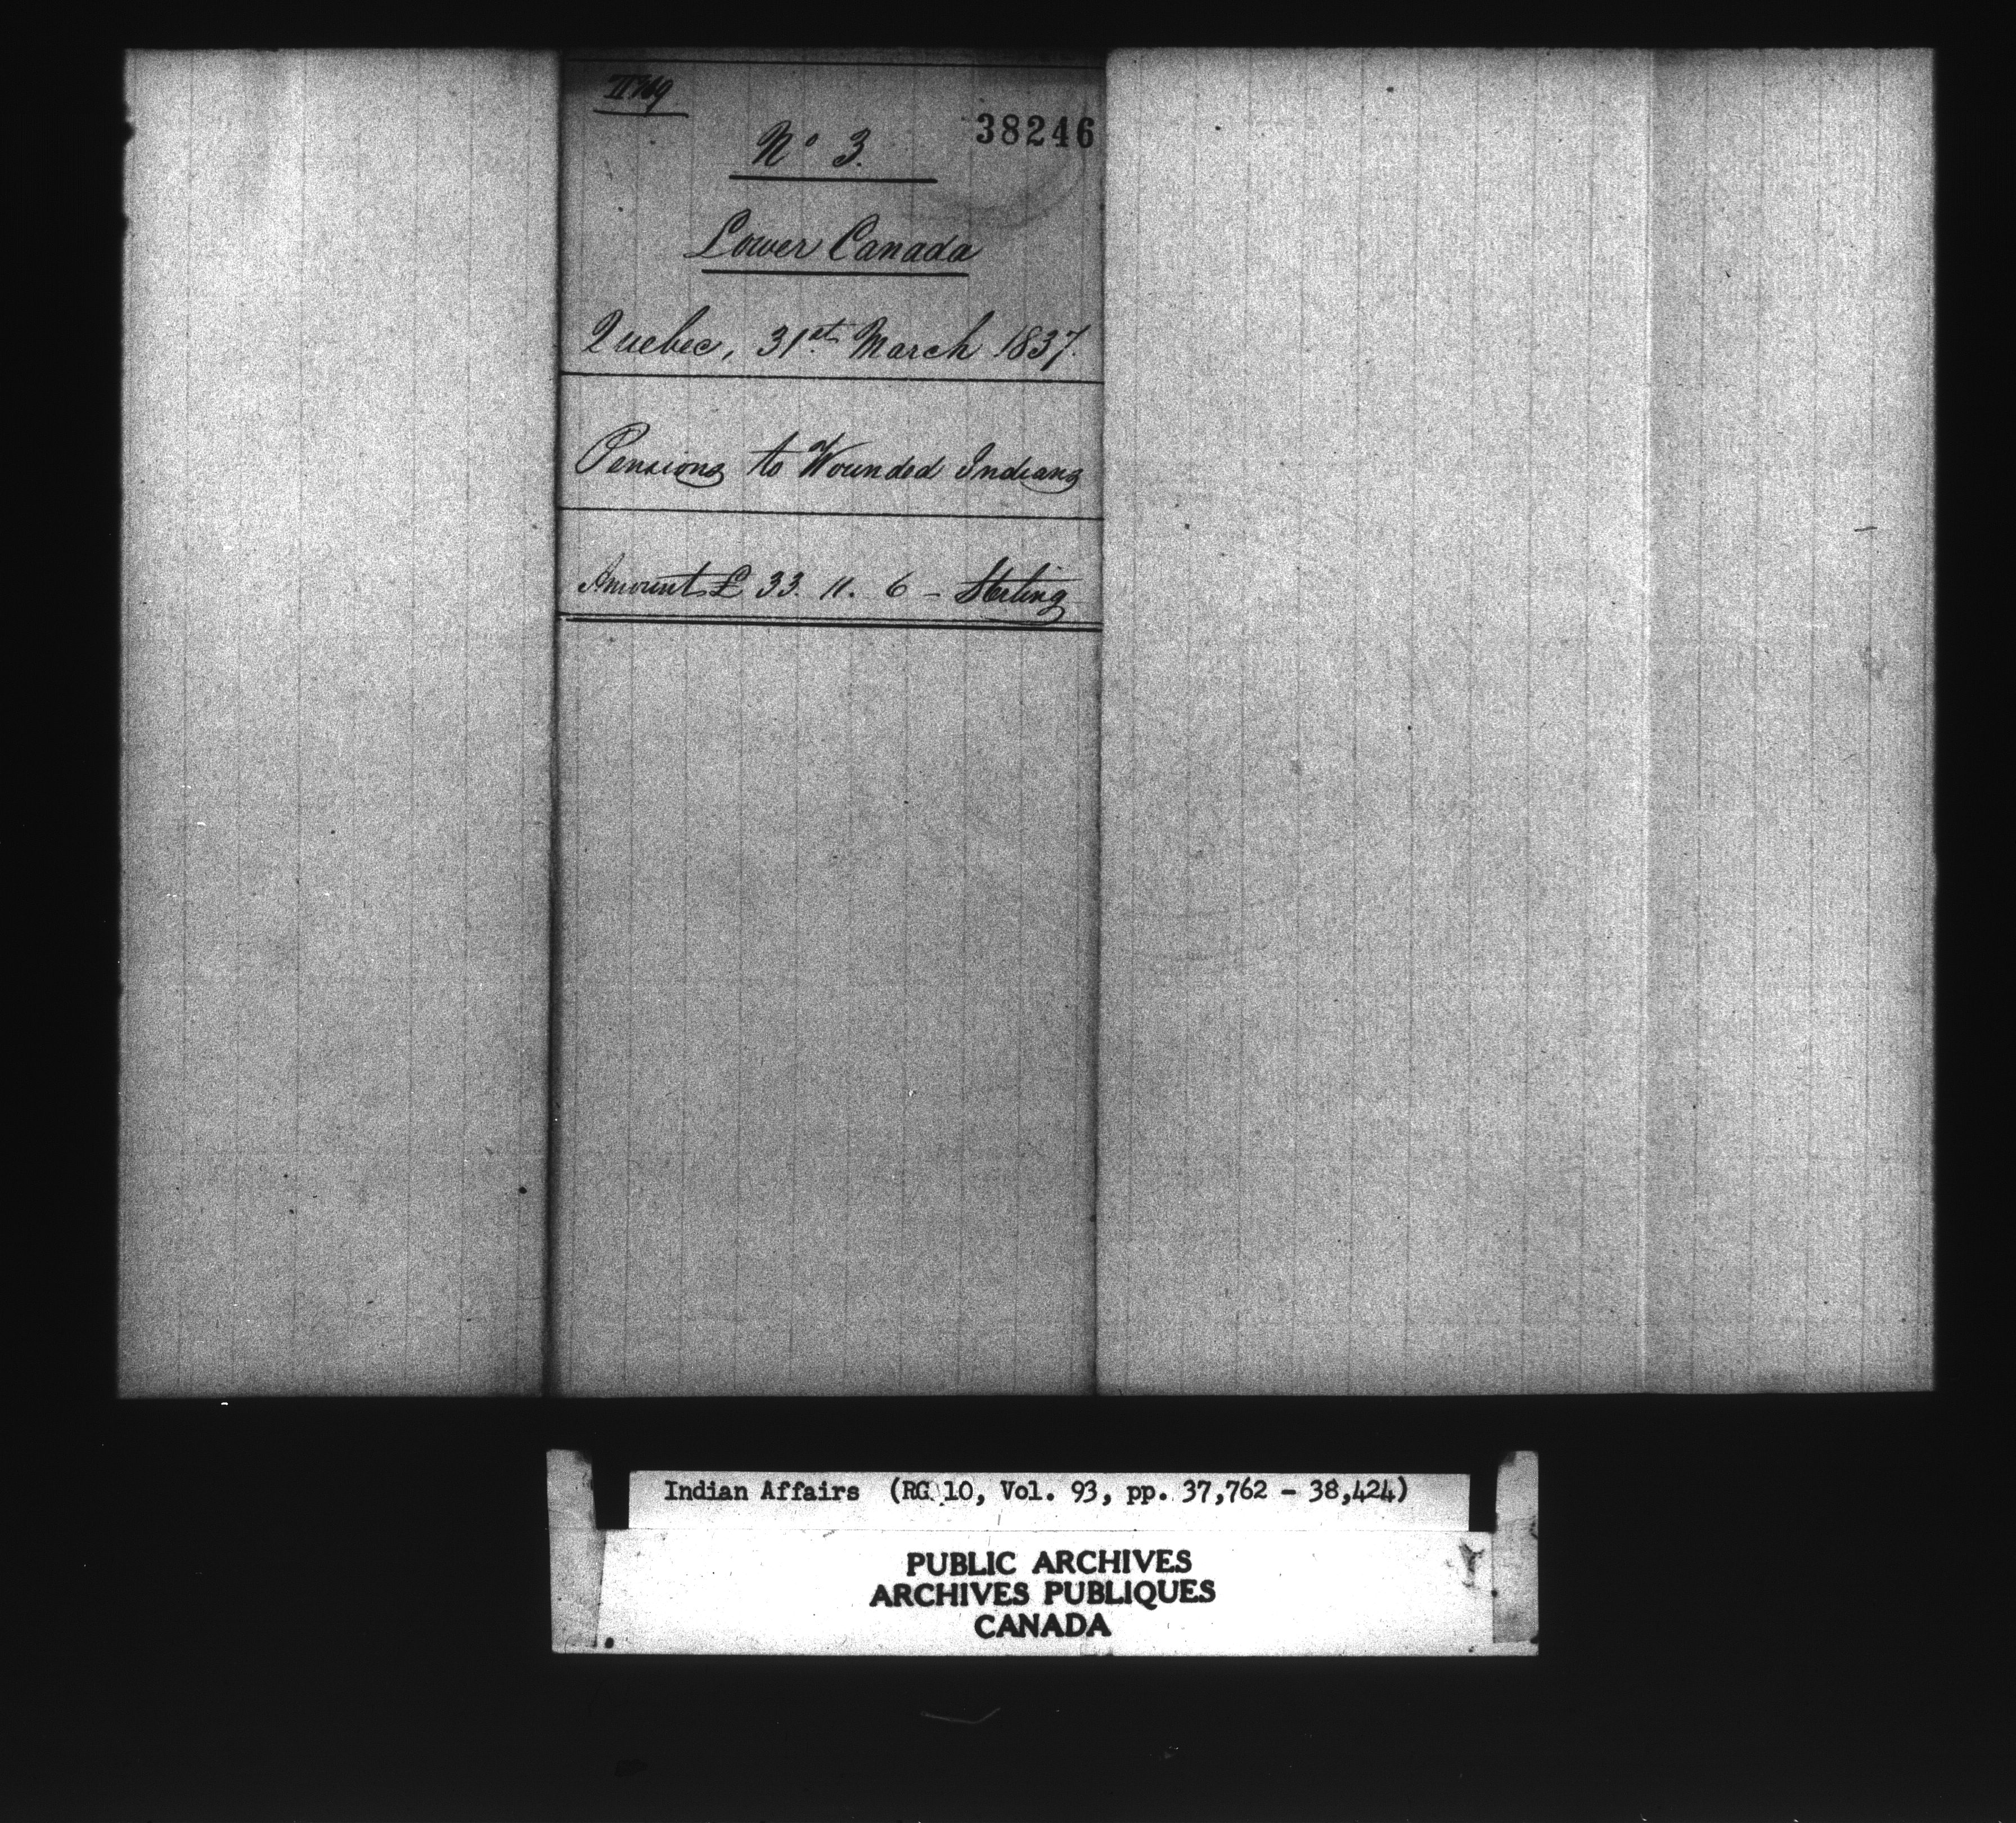 38246
No 3.
Lower Canada
Quebec, 31st March 1837.
Pensions to Wounded Indians
Amount £ 33. 11. 6 - Sterling
Indian Affairs (RG 10, Vol. 93, pp. 37,762 - 38,424)
PUBLIC ARCHIVES
ARCHIVES PUBLIQUES
CANADA